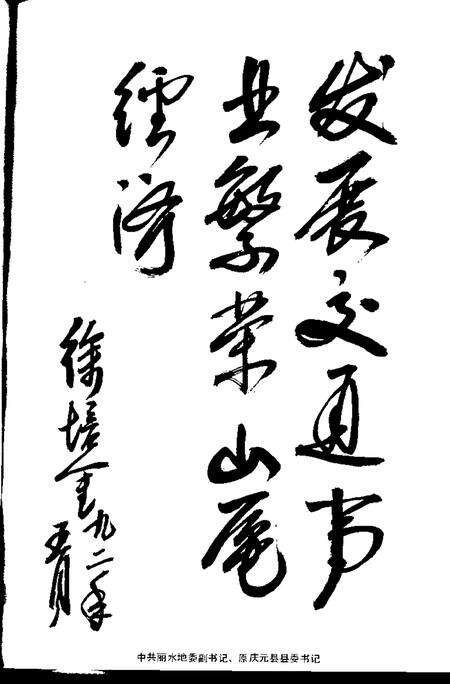 发展交通事
业繁荣山區
經济
徐培金九二年
五月
中共丽水地委副书记、原庆元县县委书记